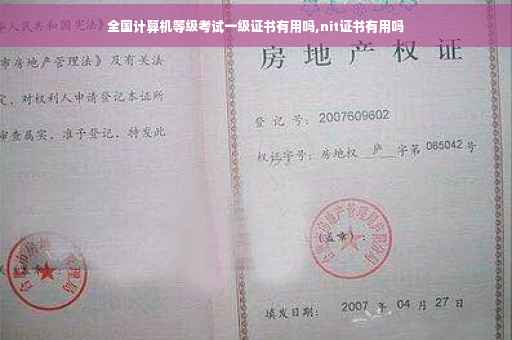 全国计算机等级考试一级证书有用吗,nit证书有用吗
人民共和国宪法》
市房地产管理法》及有关法
定,对权利人申请登记本证所
审查属实,准予登记,特发此
房地产权证
登记号:2007609602
权证字号:房地权 庐 字第 065042 号
(盖章):
填发日期: 2007 年 04 月 27 日